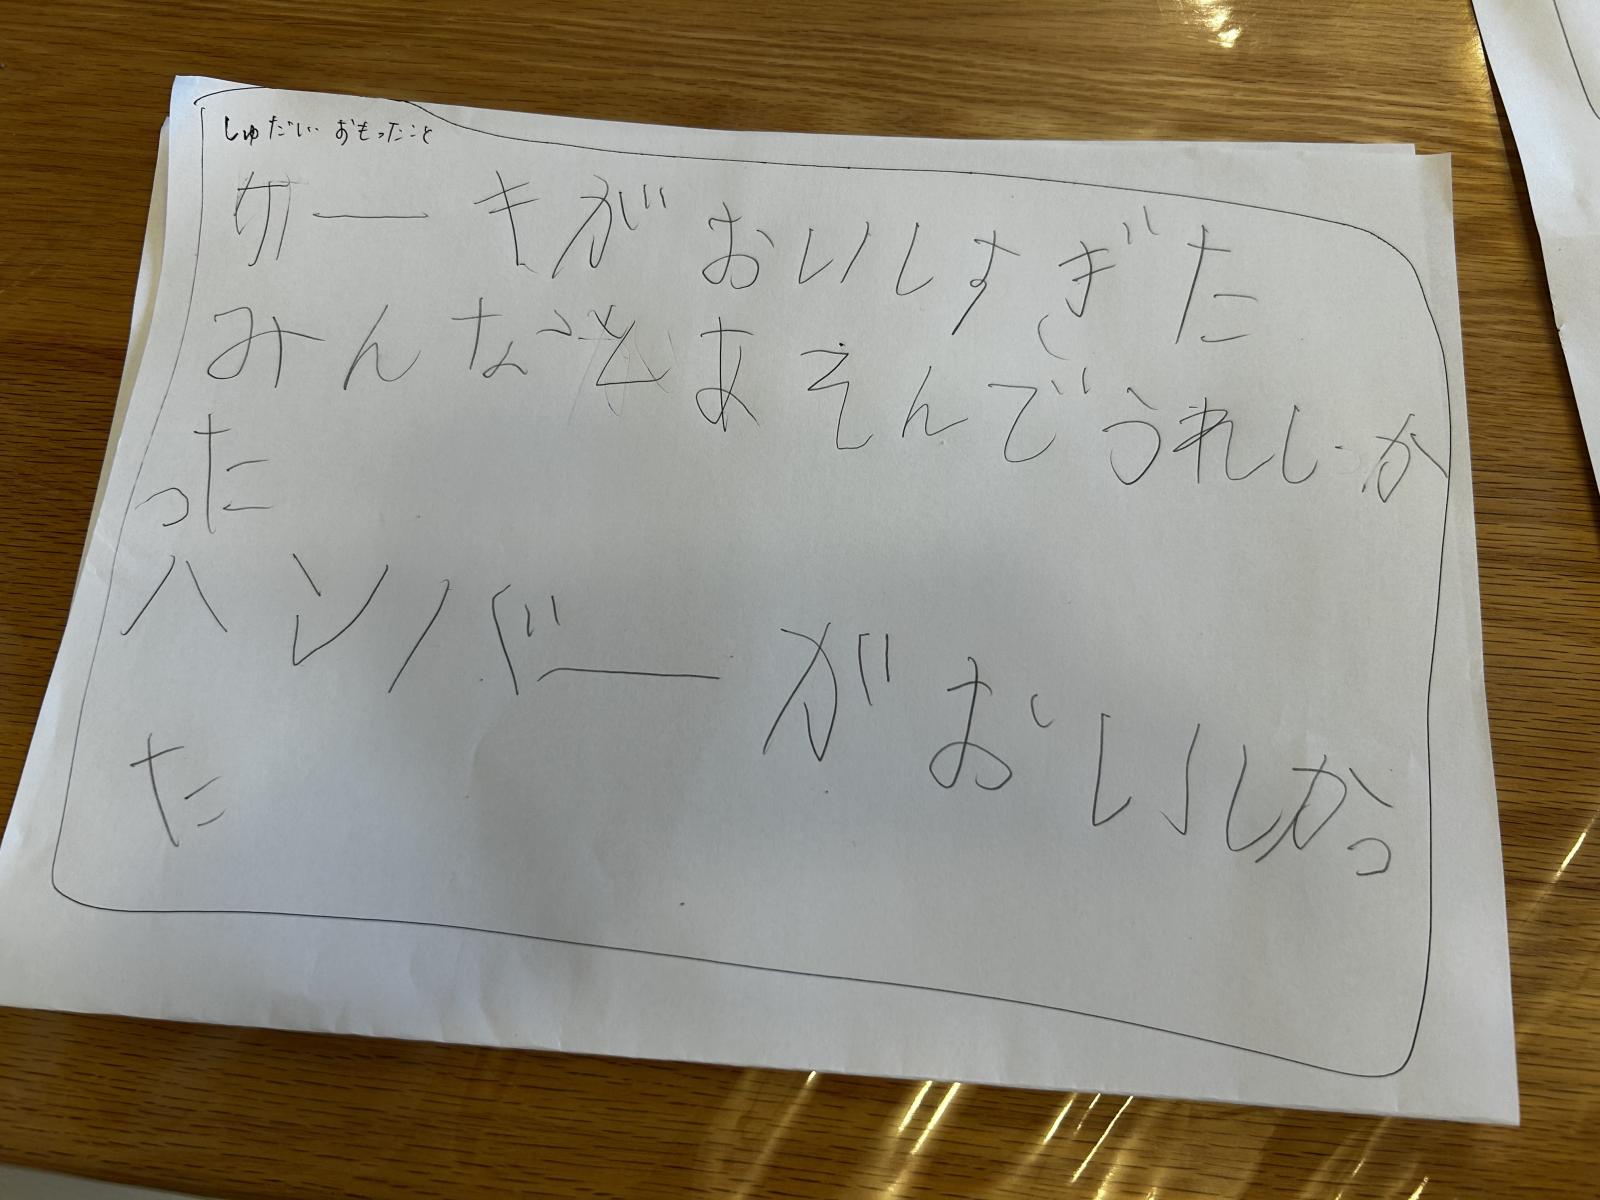 しゅだい おもったこと
ケーキがおいしすぎた
みんなとあそんでうれしか
った
ハンバーがおいしかっ
た